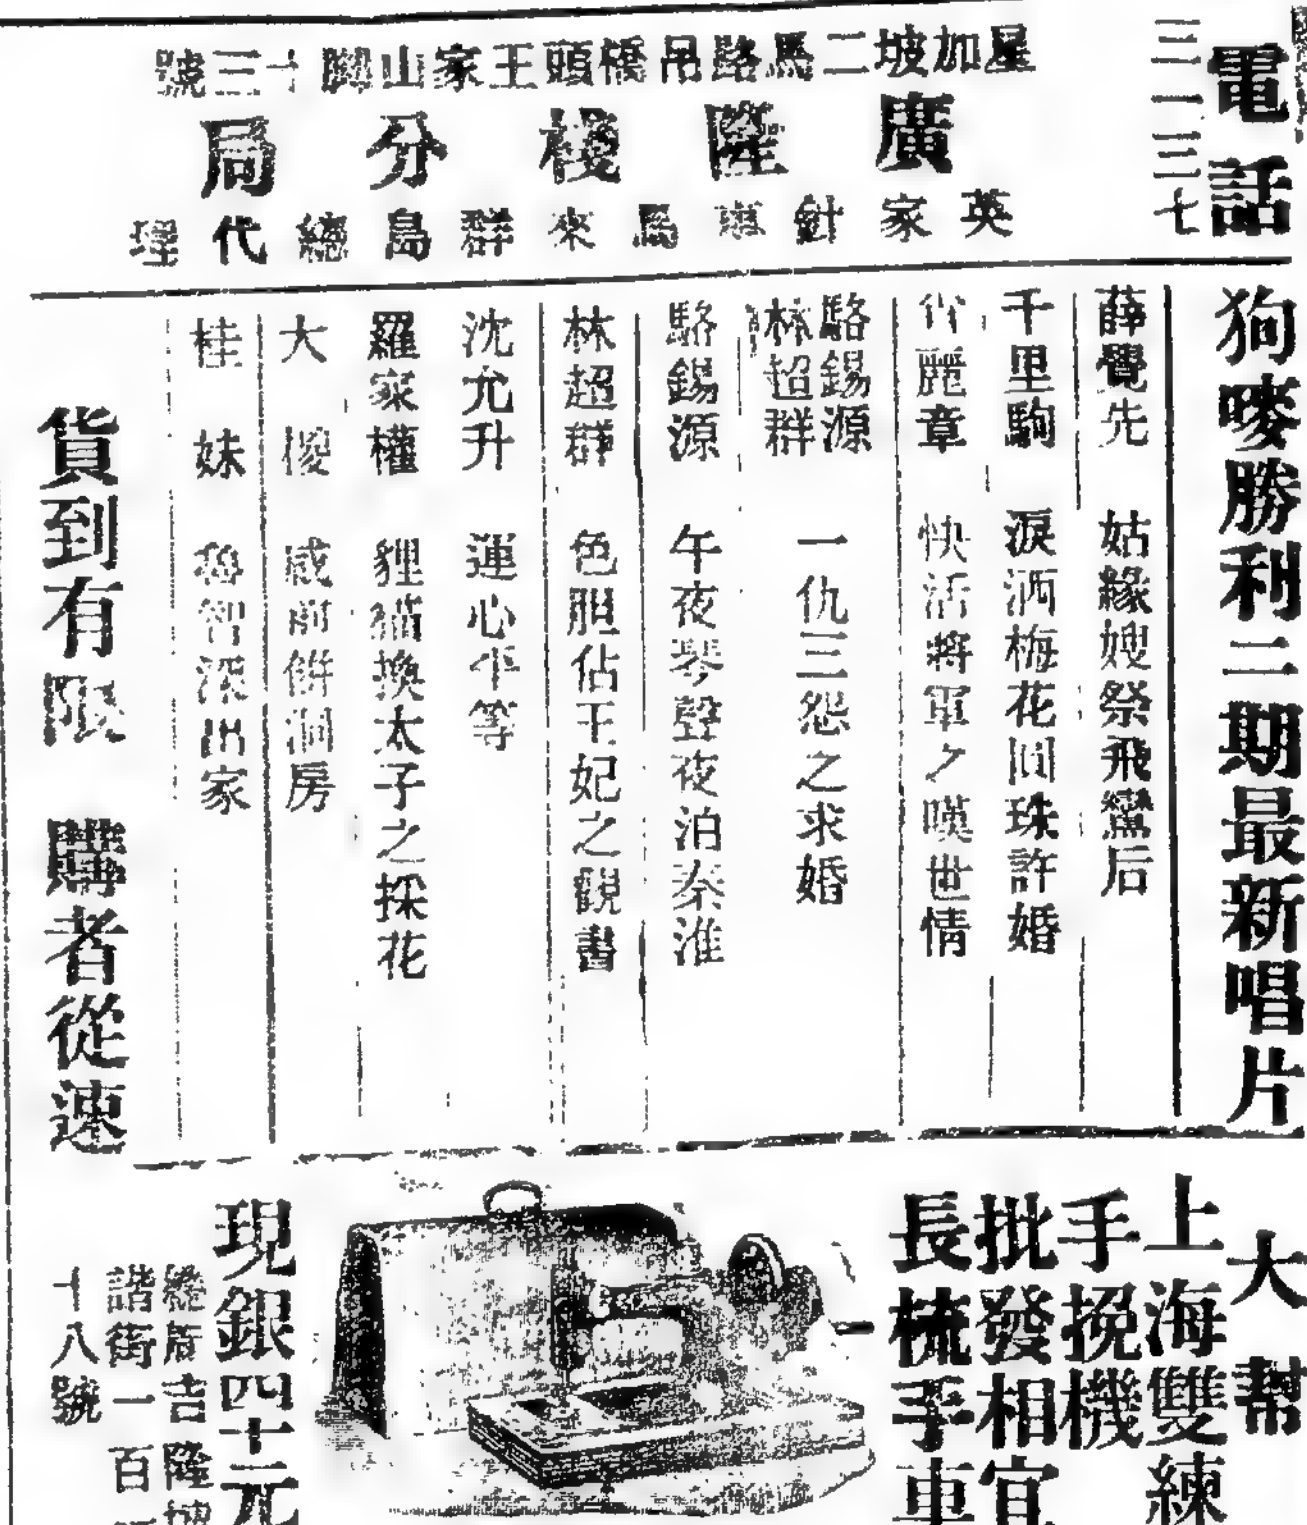 電話
三一三七
星加坡二馬路吊橋頭王家山脚十三號
廣隆棧分局
英家針車馬來群島總代理
狗嘜勝利二期最新唱片
薛覺先 姑緣嫂祭飛鸞后
千里駒 淚洒梅花間珠許婚
麗章 快活將軍之嘆世情
駱錫源
林超群 一仇三怨之求婚
駱錫源 午夜琴聲夜泊秦淮
林超群 色胆佔王妃之觀書
沈允升 運心平等
羅家權 狸貓換太子之採花
大傻 咸煎餅洞房
桂妹 魯智深出家
貨到有限 購者從速
大幫
上海雙練
手挽機
批發相宜
長梳手車
現銀四十元
吉隆坡
諧街一百
十八號